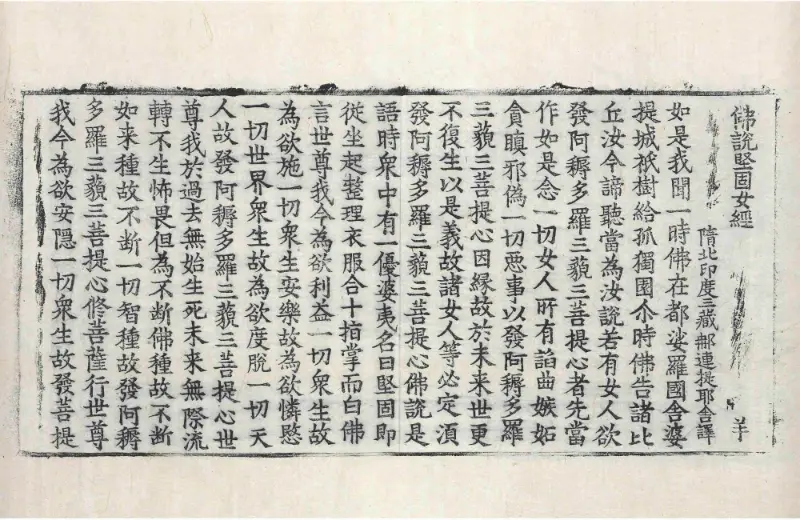 佛說堅固女經 羊
隋北印度三藏那連提耶舍譯
如是我聞一時佛在都娑羅國舍婆
提城祇樹給孤獨園尒時佛告諸比
丘汝今諦聽當為汝說若有女人欲
發阿耨多羅三藐三菩提心者先當
作如是念一切女人所有諂曲嫉妬
貪瞋邪偽一切悪事以發阿耨多羅
三藐三菩提心因緣故於未來世更
不復生以是義故諸女人等必定湏
發阿耨多羅三藐三菩提心佛說是
語時衆中有一優婆夷名曰堅固即
從坐起整理衣服合十指掌而白佛
言世尊我今為欲利益一切衆生故
為欲施一切衆生安樂故為欲憐愍
一切世界衆生故為欲度脫一切天
人故發阿耨多羅三藐三菩提心世
尊我於過去無始生死未来無際流
轉不生怖畏但為不斷佛種故不斷
如来種故不斷一切智種故發阿耨
多羅三藐三菩提心修菩薩行世尊
我今為欲安隱一切衆生故發菩提